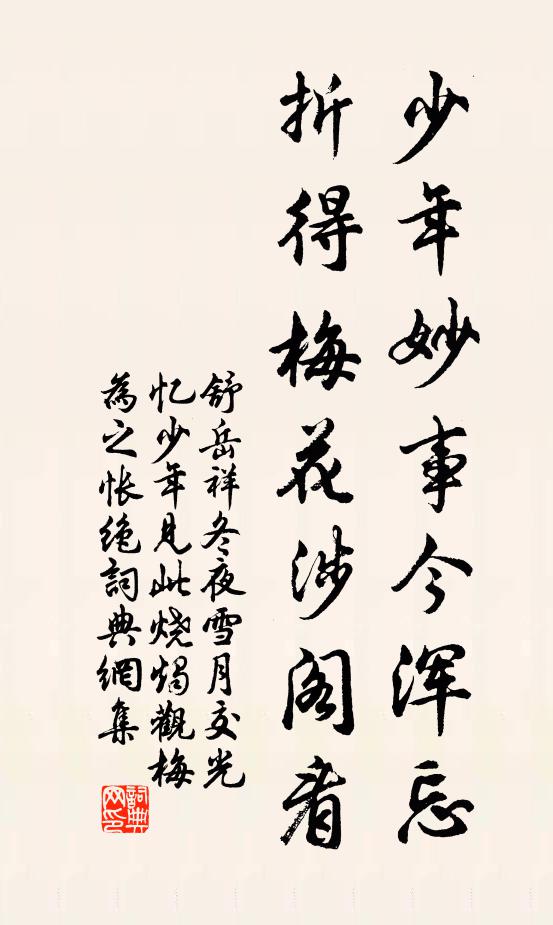 少年妙事今浑忘
折得梅花涉阁看
舒岳祥冬夜雪月交光
忆少年见此烧烛觀梅
為之怅絶詞典網集
詞典网印